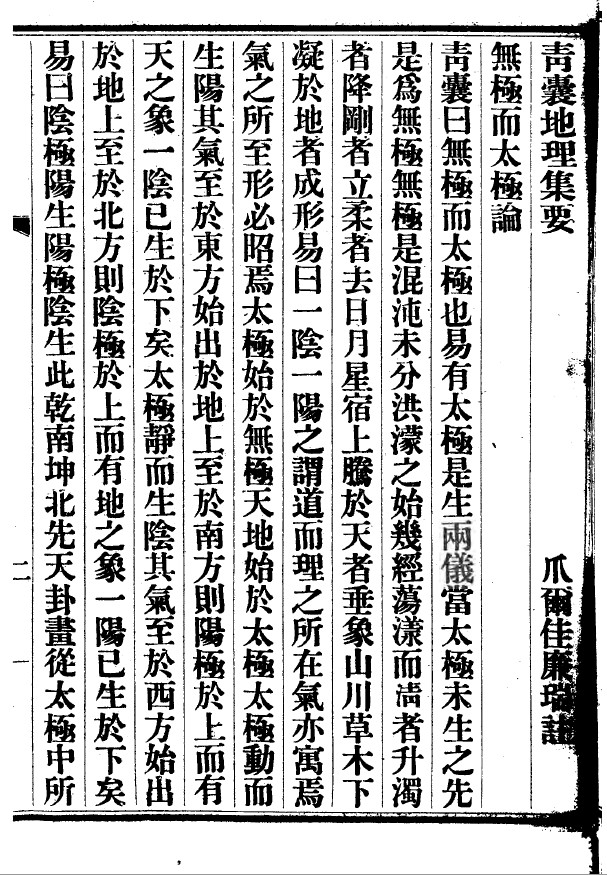 青囊地理集要 爪爾佳廉瑞註
無極而太極論
青囊曰無極而太極也易有太極是生兩儀當太極未生之先
是爲無極無極是混沌未分洪濛之始幾經蕩漾而淸者升濁
者降剛者立柔者去日月星宿上騰於天者垂象山川草木下
凝於地者成形易曰一陰一陽之謂道而理之所在氣亦寓焉
氣之所至形必昭焉太極始於無極天地始於太極太極動而
生陽其氣至於東方始出於地上至於南方則陽極於上而有
天之象一陰已生於下矣太極靜而生陰其氣至於西方始出
於地上至於北方則陰極於上而有地之象一陽已生於下矣
易曰陰極陽生陽極陰生此乾南坤北先天卦畫從太極中所
二 一